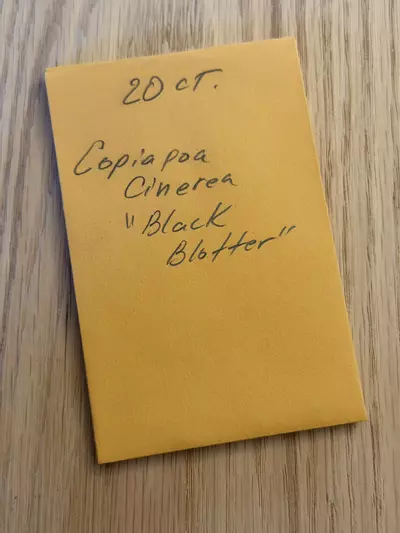 20 CT.
Copiapoa
Cinerea
"Black
Blotter"